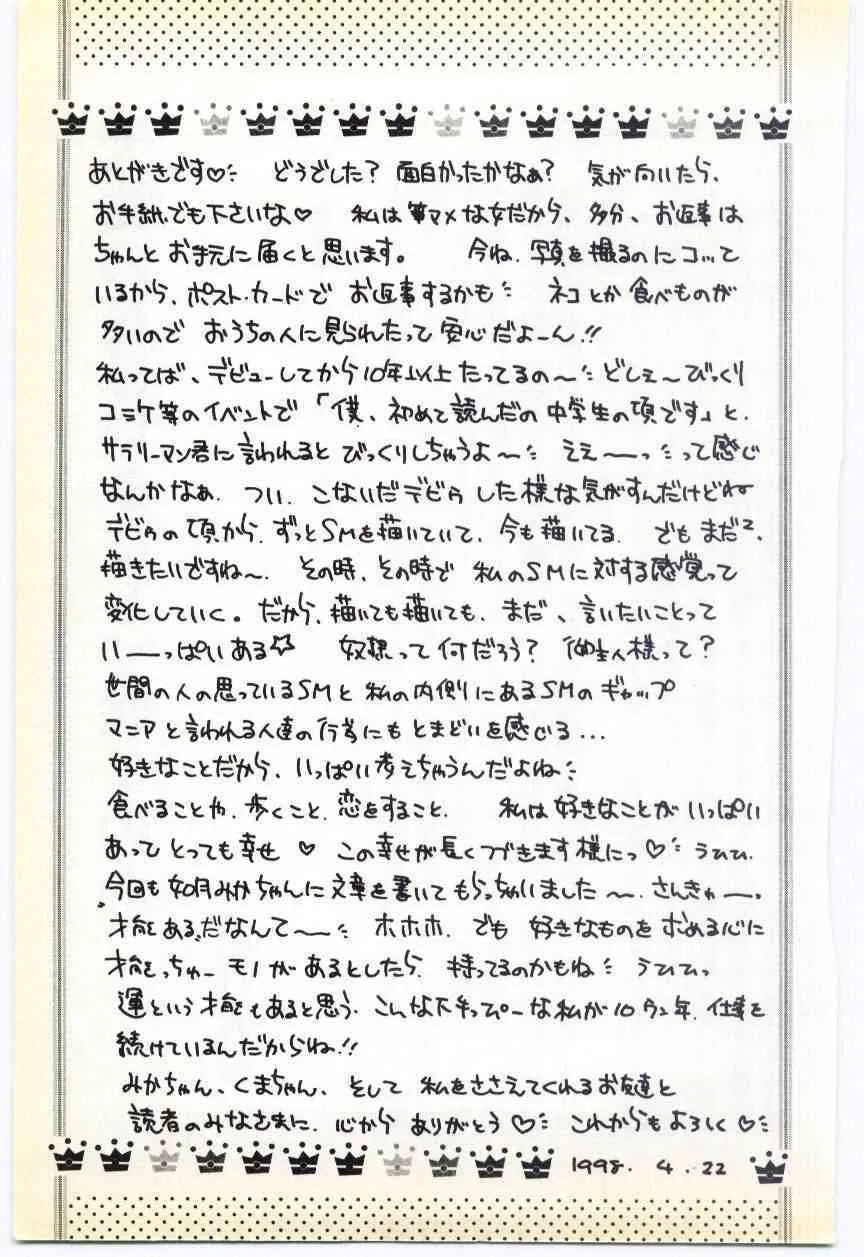 あとがきです♡ どうでした? 面白かったかなぁ? 気が向いたら、
お手紙でも下さいな♡ 私は筆マメな女だから、多分、お返事は
ちゃんとお手元に届くと思います。 今ね、写真を撮るのにコッて
いるから、ポスト・カードでお返事するかも ネコとか食べものが
多いのでおうちの人に見られたって安心だよーん!!
私ってば、デビューしてから10年以上たってるの〜 どしぇ〜びっくり
コミケ等のイベントで「僕、初めて読んだの中学生の頃です」と、
サラリーマン君に言われるとびっくりしちゃうよ〜 ええーっって感じ
なんかなぁ、つい、こないだデビゥした様な気がすんだけどね
デビゥの頃から、ずっとSMを描いていて、今も描いてる。でもまだ2、
描きたいですね〜、その時、その時で私のSMに対する感覚って
変化していく。だから、描いても描いても、まだ、言いたいことって
いーっぱいある☆ 奴隷って何だろう? 御主人様って?
世間の人の思っているSMと私の内側にあるSMのギャップ
マニアと言われる人達の行為にもとまどいを感じる...
好きなことだから、いっぱい考えちゃうんだよね
食べることや、歩くこと、恋をすること、 私は好きなことがいっぱい
あってとっても幸せ♡ この幸せが長くつづきます様にっ♡ うひひ、
今回も如月みかちゃんに文章を書いてもらっちゃいました〜、さんきゅーっ
"才能ある"だなんて〜 ホホホ、でも好きなものを求める心に
才能っちゃーモノがあるとしたら、持ってるのかもね うひひっ
運という才能もあると思う、こんな下手っぴーな私が10ウン年、仕事を
続けているんだからね!!
みかちゃん、くまちゃん、そして私をささえてくれるお友達と
読者のみなさまに、心からありがとう♡ これからもよろしく♡
1998. 4. 22